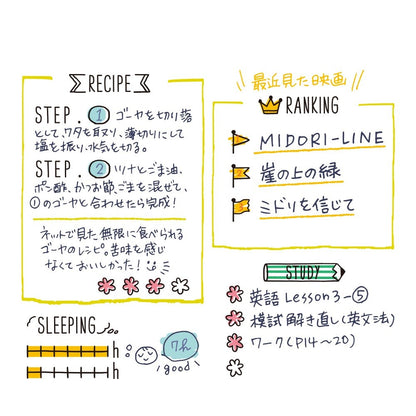 RECIPE
STEP. 1 ゴーヤを切り落
として、ワタを取り、薄切りにして
塩を振り、水気を切る。
STEP. 2 ツナとごま油、
ポン酢、かつお節、ごまを混ぜて、
①のゴーヤと合わせたら完成!
ネットで見た無限に食べられる
ゴーヤのレシピ。苦味を感じ
なくておいしかった!
SLEEPING
h
h
7h
good
最近見た映画
RANKING
MIDORI-LINE
崖の上の緑
ミドリを信じて
STUDY
英語 Lesson3-⑤
模試解き直し(英文法)
ワーク(P14〜20)